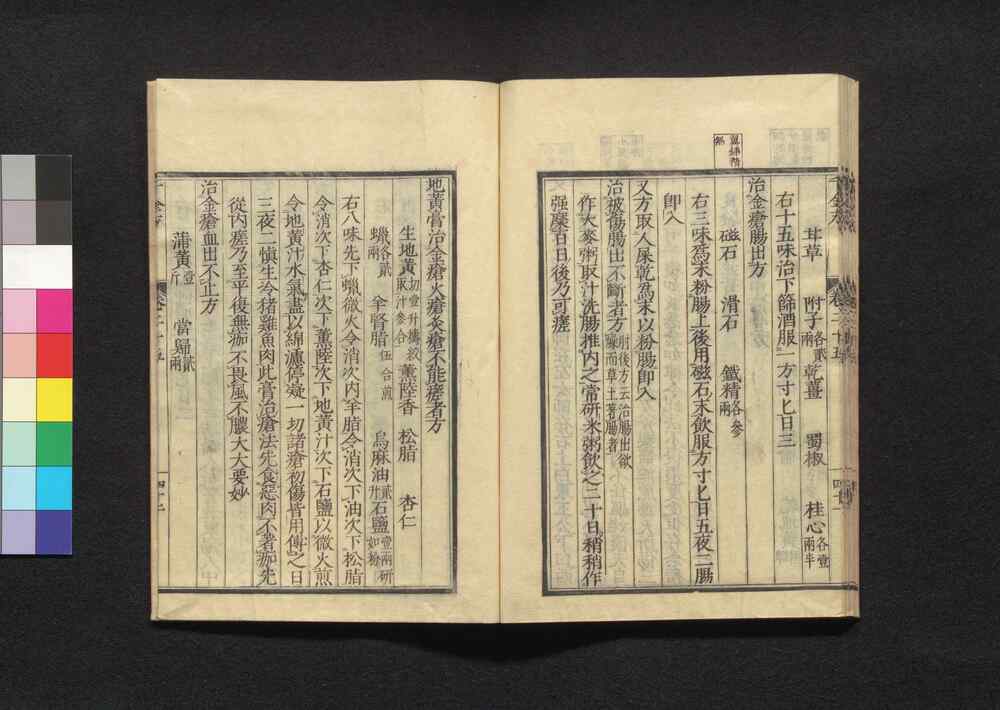 茸草 附子各貳兩 乾薑 蜀椒 桂心各壹兩半
右十五味治下篩酒服一方寸匕日三
治金瘡腸出方
磁石 滑石 鐵精各參兩
右三味爲末粉腸上後用磁石末飲服方寸匕日五夜二腸
卽入
又方取人屎乾爲末以粉腸卽入
治被傷腸出不斷者方肘後方云治腸出欲燥而草土著腸者
作大麥粥取汁洗腸推内之常研米粥飲之二十日稍稍作
强糜百日後乃可瘥
地黃膏治金瘡火瘡灸瘡不能瘥者方
生地黃切壹升擣絞取汁參合 薰陸香 松脂 杏仁
蠟各貳兩 羊腎脂伍合煎 烏麻油貳升 石鹽壹兩研如粉
右八味先下蠟微火令消次内羊脂令消次下油次下松脂
令消次下杏仁次下薰陸次下地黃汁次下石鹽以微火煎
令地黃汁水氣盡以綿濾停凝一切諸瘡初傷皆用傅之日
三夜二愼生冷猪雞魚肉此膏治瘡法先食惡肉不著痂先
從内瘥乃至平復無痂不畏風不膿大大要妙
治金瘡血出不止方
蒲黃壹斤 當歸貳兩